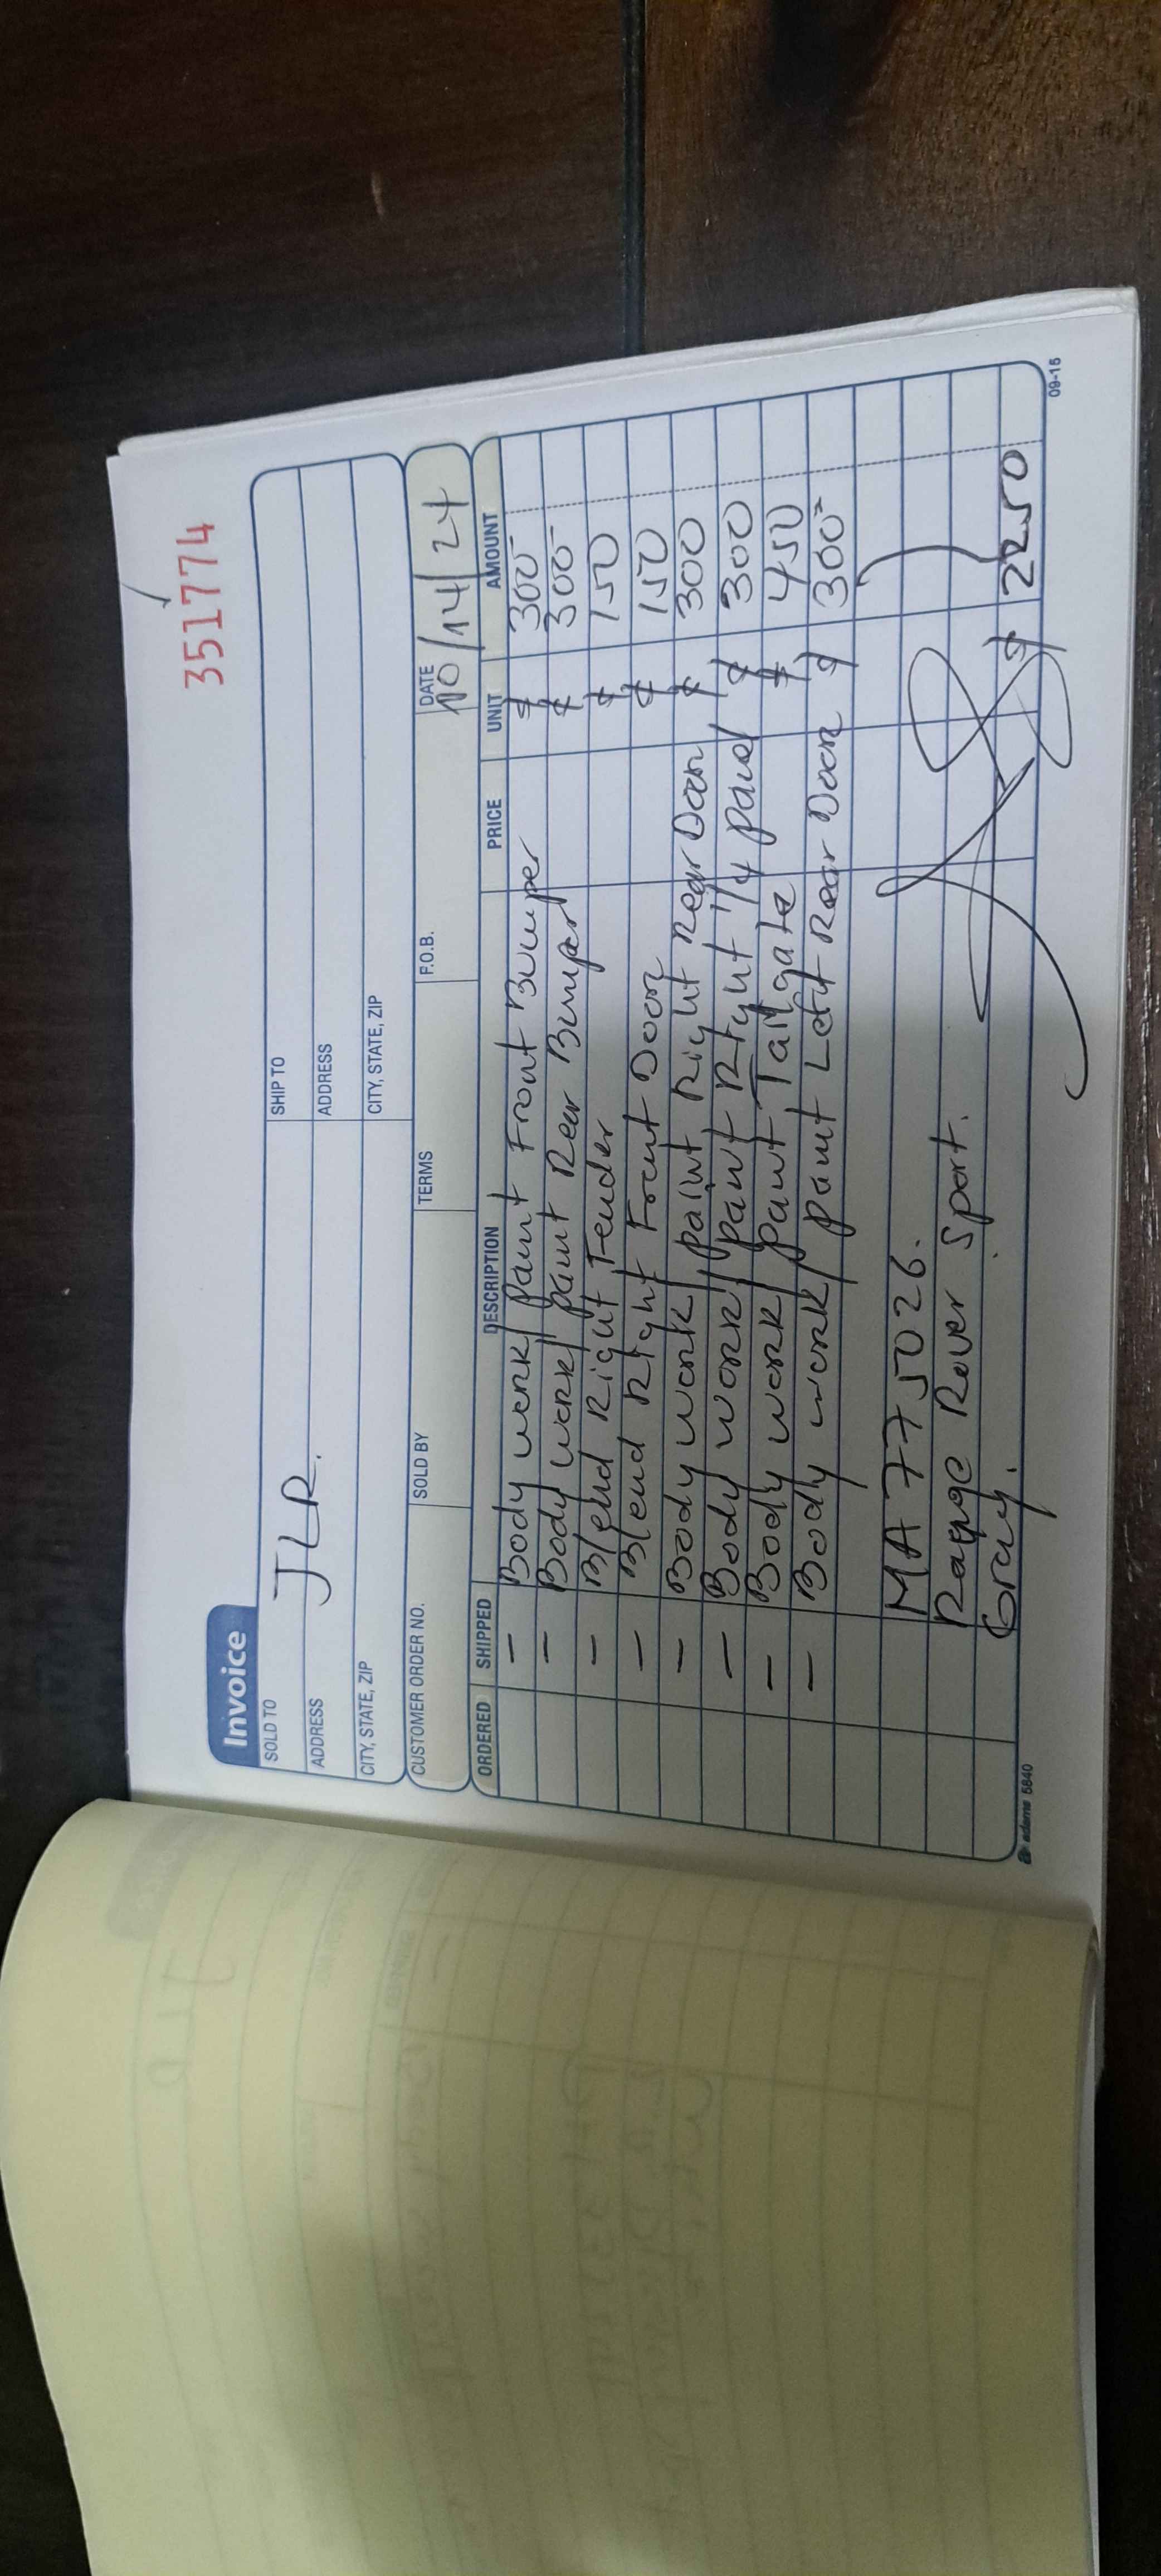 351774
Invoice
SOLD TO JLR.
SHIP TO
ADDRESS
ADDRESS
CITY, STATE, ZIP
CITY, STATE, ZIP
CUSTOMER ORDER NO. SOLD BY TERMS F.O.B. DATE 10/14/24
ORDERED SHIPPED DESCRIPTION PRICE UNIT AMOUNT
- Body work/paint Front Bumper $ 300-
- Body work/paint Rear Bumper $ 300-
- Blend Right Fender $ 150
- Blend Right Front Door $ 150
- Body work/paint Right Rear Door $ 300
- Body work/paint Right 1/4 panel $ 300
- Body work/paint Tailgate $ 450
- Body work/paint Left Rear Door $ 300=
MA 775026.
Range Rover Sport.
Gray. $ 2250
adams 5840 09-15